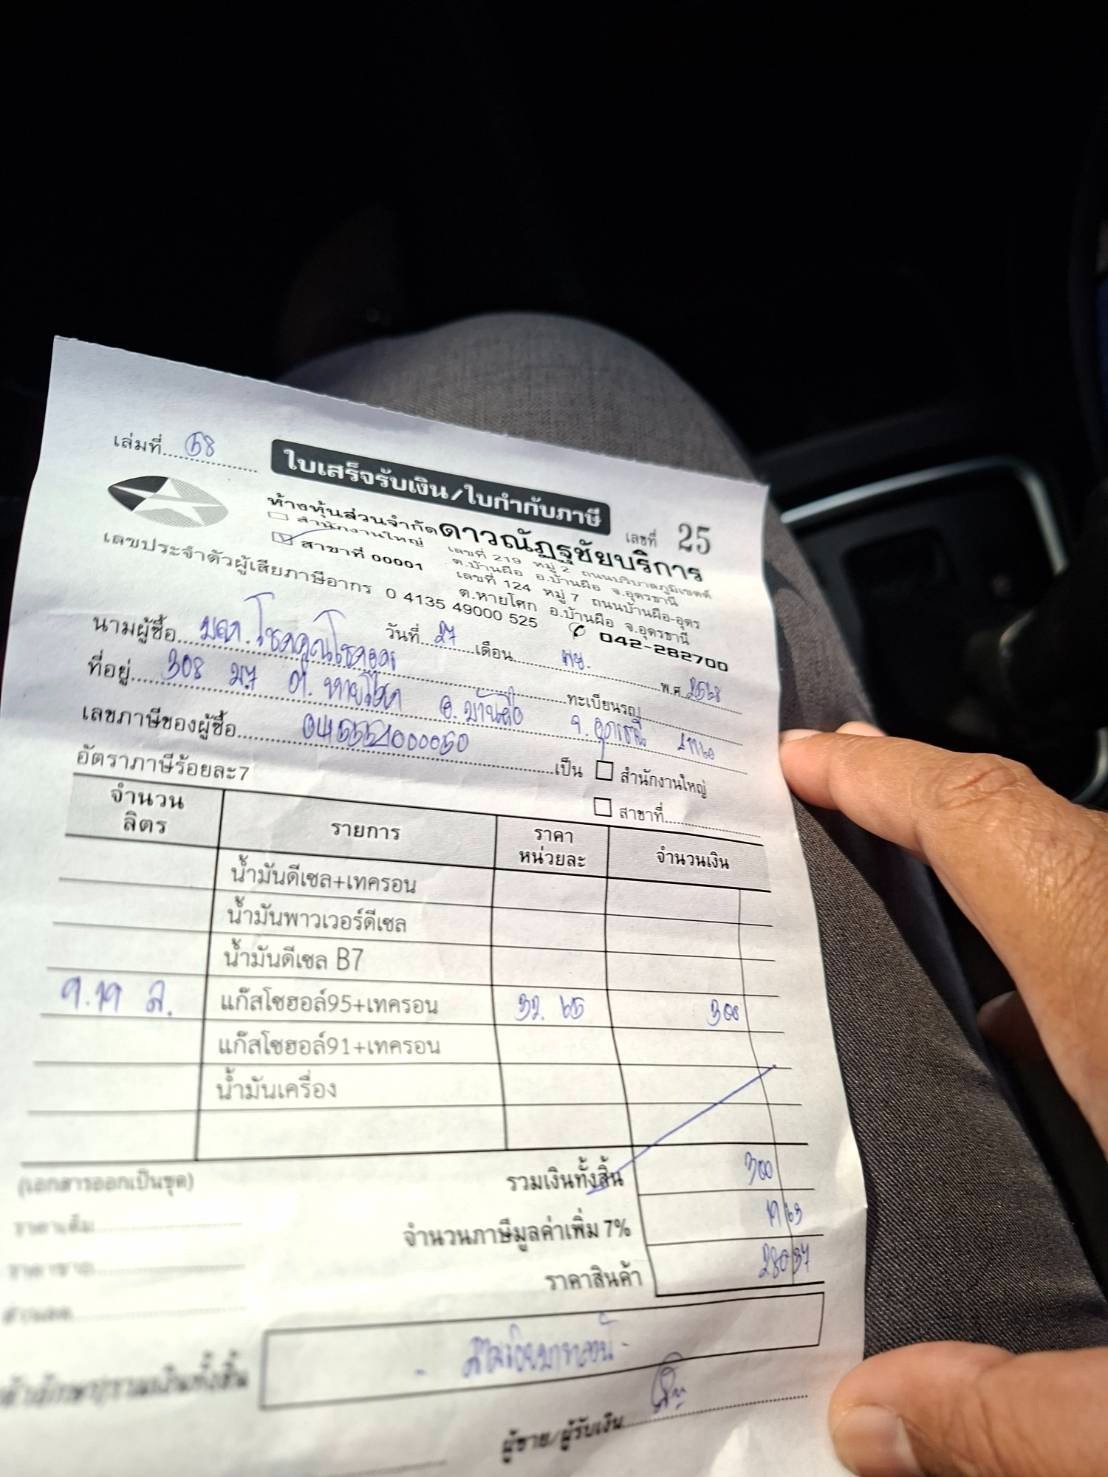 เล่มที่ 58
ใบเสร็จรับเงิน/ใบกำกับภาษี
เลขที่ 25
ห้างหุ้นส่วนจำกัดดาวณัฏฐชัยบริการ
สำนักงานใหญ่ เลขที่ 219 หมู่ 2 ต.บ้านผือ อ.บ้านผือ จ.อุดรธานี
สาขาที่ 00001 เลขที่ 124 หมู่ 7 ถนนบ้านผือ-อุดร
ต.หายโศก อ.บ้านผือ จ.อุดรธานี
เลขประจำตัวผู้เสียภาษีอากร 0 4135 49000 525 042-282700
วันที่ 27 เดือน พย. พ.ศ. 2568
นามผู้ซื้อ ทะเบียนรถ
ที่อยู่ 308 ม7 ต. หายโศก อ.บ้านผือ จ.อุดรธานี
เลขภาษีของผู้ซื้อ เป็น สำนักงานใหญ่
สาขาที่
อัตราภาษีร้อยละ7
จำนวนลิตร รายการ ราคาหน่วยละ จำนวนเงิน
น้ำมันดีเซล+เทครอน
น้ำมันพาวเวอร์ดีเซล
น้ำมันดีเซล B7
9.19 ล. แก๊สโซฮอล์95+เทครอน 32.65 300
แก๊สโซฮอล์91+เทครอน
น้ำมันเครื่อง
(เอกสารออกเป็นชุด)
รวมเงินทั้งสิ้น 300
จำนวนภาษีมูลค่าเพิ่ม 7% 19 63
ราคาสินค้า 280 37
ราคาเต็ม
ราคาขาย
ส่วนลด
- สามร้อยบาทถ้วน -
ผู้ขาย/ผู้รับเงิน